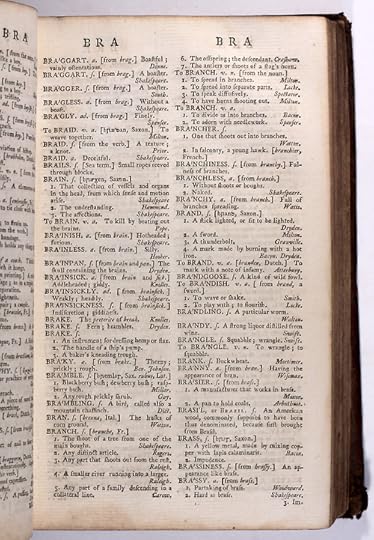 BRA
BRA'GGART. a. [from brag.] Boastful;
vainly ostentatious. Donne.
BRA'GGART. s. [from brag.] A boaster.
Shakespeare.
BRA'GGER. s. [from brag.] A boaster.
South.
BRA'GLESS. a. [from brag.] Without a
boast. Shakespeare.
BRA'GLY. ad. [from brag.] Finely.
Spenser.
To BRAID. v. a. [Saxon.] To
weave together. Milton.
BRAID. s. [from the verb.] A texture;
a knot. Prior.
BRAID. a. Deceitful. Shakespeare.
BRAILS. s. [Sea term.] Small ropes reeved
through blocks.
BRAIN. s. [Saxon.]
1. That collection of vessels and organs
in the head, from which sense and motion
arise. Shakespeare.
2. The understanding. Hammond.
3. The affections. Shakespeare.
To BRAIN. v. a. To kill by beating out
the brains. Pope.
BRA'INISH. a. [from brain.] Hotheaded;
furious. Shakespeare.
BRA'INLESS. a. [from brain.] Silly.
Hooker.
BRA'INPAN. s. [from brain and pan.] The
skull containing the brains. Dryden.
BRA'INSICK. a. [from brain and sick.]
Addleheaded; giddy. Knolles.
BRA'INSICKLY. ad. [from brainsick.]
Weakly; headily. Shakespeare.
BRA'INSICKNESS. s. [from brainsick.]
Indiscretion; giddiness.
BRAKE. The preterite of break. Knolles.
BRAKE. s. Fern; brambles. Dryden.
BRAKE. s.
1. An instrument for dressing hemp or flax.
2. The handle of a ship's pump.
3. A baker's kneading trough.
BRA'KY. a. [from brake.] Thorny;
prickly; rough. Ben. Johnson.
BRA'MBLE. s. [Sax. rubus, Lat.]
1. Blackberry bush; dewberry bush; raspberry
bush. Miller.
2. Any rough prickly shrub. Gay.
BRA'MBLING. s. A bird, called also a
mountain chaffinch. Dict.
BRAN. s. [brenna, Ital.] The husks of
corn ground. Wotton.
BRANCH. s. [branche, Fr.]
1. The shoot of a tree from one of the
main boughs. Shakespeare.
2. Any distinct article. Rogers.
3. Any part that shoots out from the rest.
Raleigh.
4. A smaller river running into a larger.
Raleigh.
5. Any part of a family descending in a
collateral line. Carew.
BRA
6. The offspring; the descendant. Crashaw.
7. The antlers or shoots of a stag's horn.
To BRANCH. v. n. [from the noun.]
1. To spread in branches. Milton.
2. To spread into separate parts. Locke.
3. To speak diffusively. Spectator.
4. To have horns shooting out. Milton.
To BRANCH. v. a.
1. To divide as into branches. Bacon.
2. To adorn with needlework. Spenser.
BRA'NCHER. s.
1. One that shoots out into branches.
Wotton.
2. In falconry, a young hawk. [branchier,
French.]
BRA'NCHINESS. s. [from branchy.] Fulness
of branches.
BRA'NCHLESS. a. [from branch.]
1. Without shoots or boughs.
2. Naked. Shakespeare.
BRA'NCHY. a. [from branch.] Full of
branches spreading. Watts.
BRAND. s. [Saxon.]
1. A stick lighted, or fit to be lighted.
Dryden.
2. A sword. Milton.
3. A thunderbolt. Granville.
4. A mark made by burning with a hot
iron. Bacon. Dryden.
To BRAND. v. a. [branden, Dutch.] To
mark with a note of infamy. Atterbury.
BRA'NDGOOSE. s. A kind of wild fowl.
To BRA'NDISH. v. a. [from brand, a
sword.]
1. To wave or shake. Smith.
2. To play with; to flourish. Locke.
BRA'NDLING. s. A particular worm.
Walton.
BRA'NDY. s. A strong liquor distilled from
wine. Swift.
BRA'NGLE. s. Squabble; wrangle. Swift.
To BRA'NGLE. v. n. To wrangle; to
squabble.
BRANK. s. Buckwheat. Mortimer.
BRA'NNY. a. [from bran.] Having the
appearance of bran. Wiseman.
BRA'SIER. s. [from brass.]
1. A manufacturer that works in brass.
Moxon.
2. A pan to hold coals. Arbuthnot.
BRASI'L, or BRAZIL. s. An American
wood, commonly supposed to have been
thus denominated, because first brought
from Brasil.
BRASS. s. [Saxon.]
1. A yellow metal, made by mixing copper
with lapis calaminaris. Bacon.
2. Impudence.
BRA'SSINESS. s. [from brassy.] An appearance
like brass.
BRA'SSY. a. [from brass.]
1. Partaking of brass. Woodward.
2. Hard as brass. Shakespeare.
3. Im-